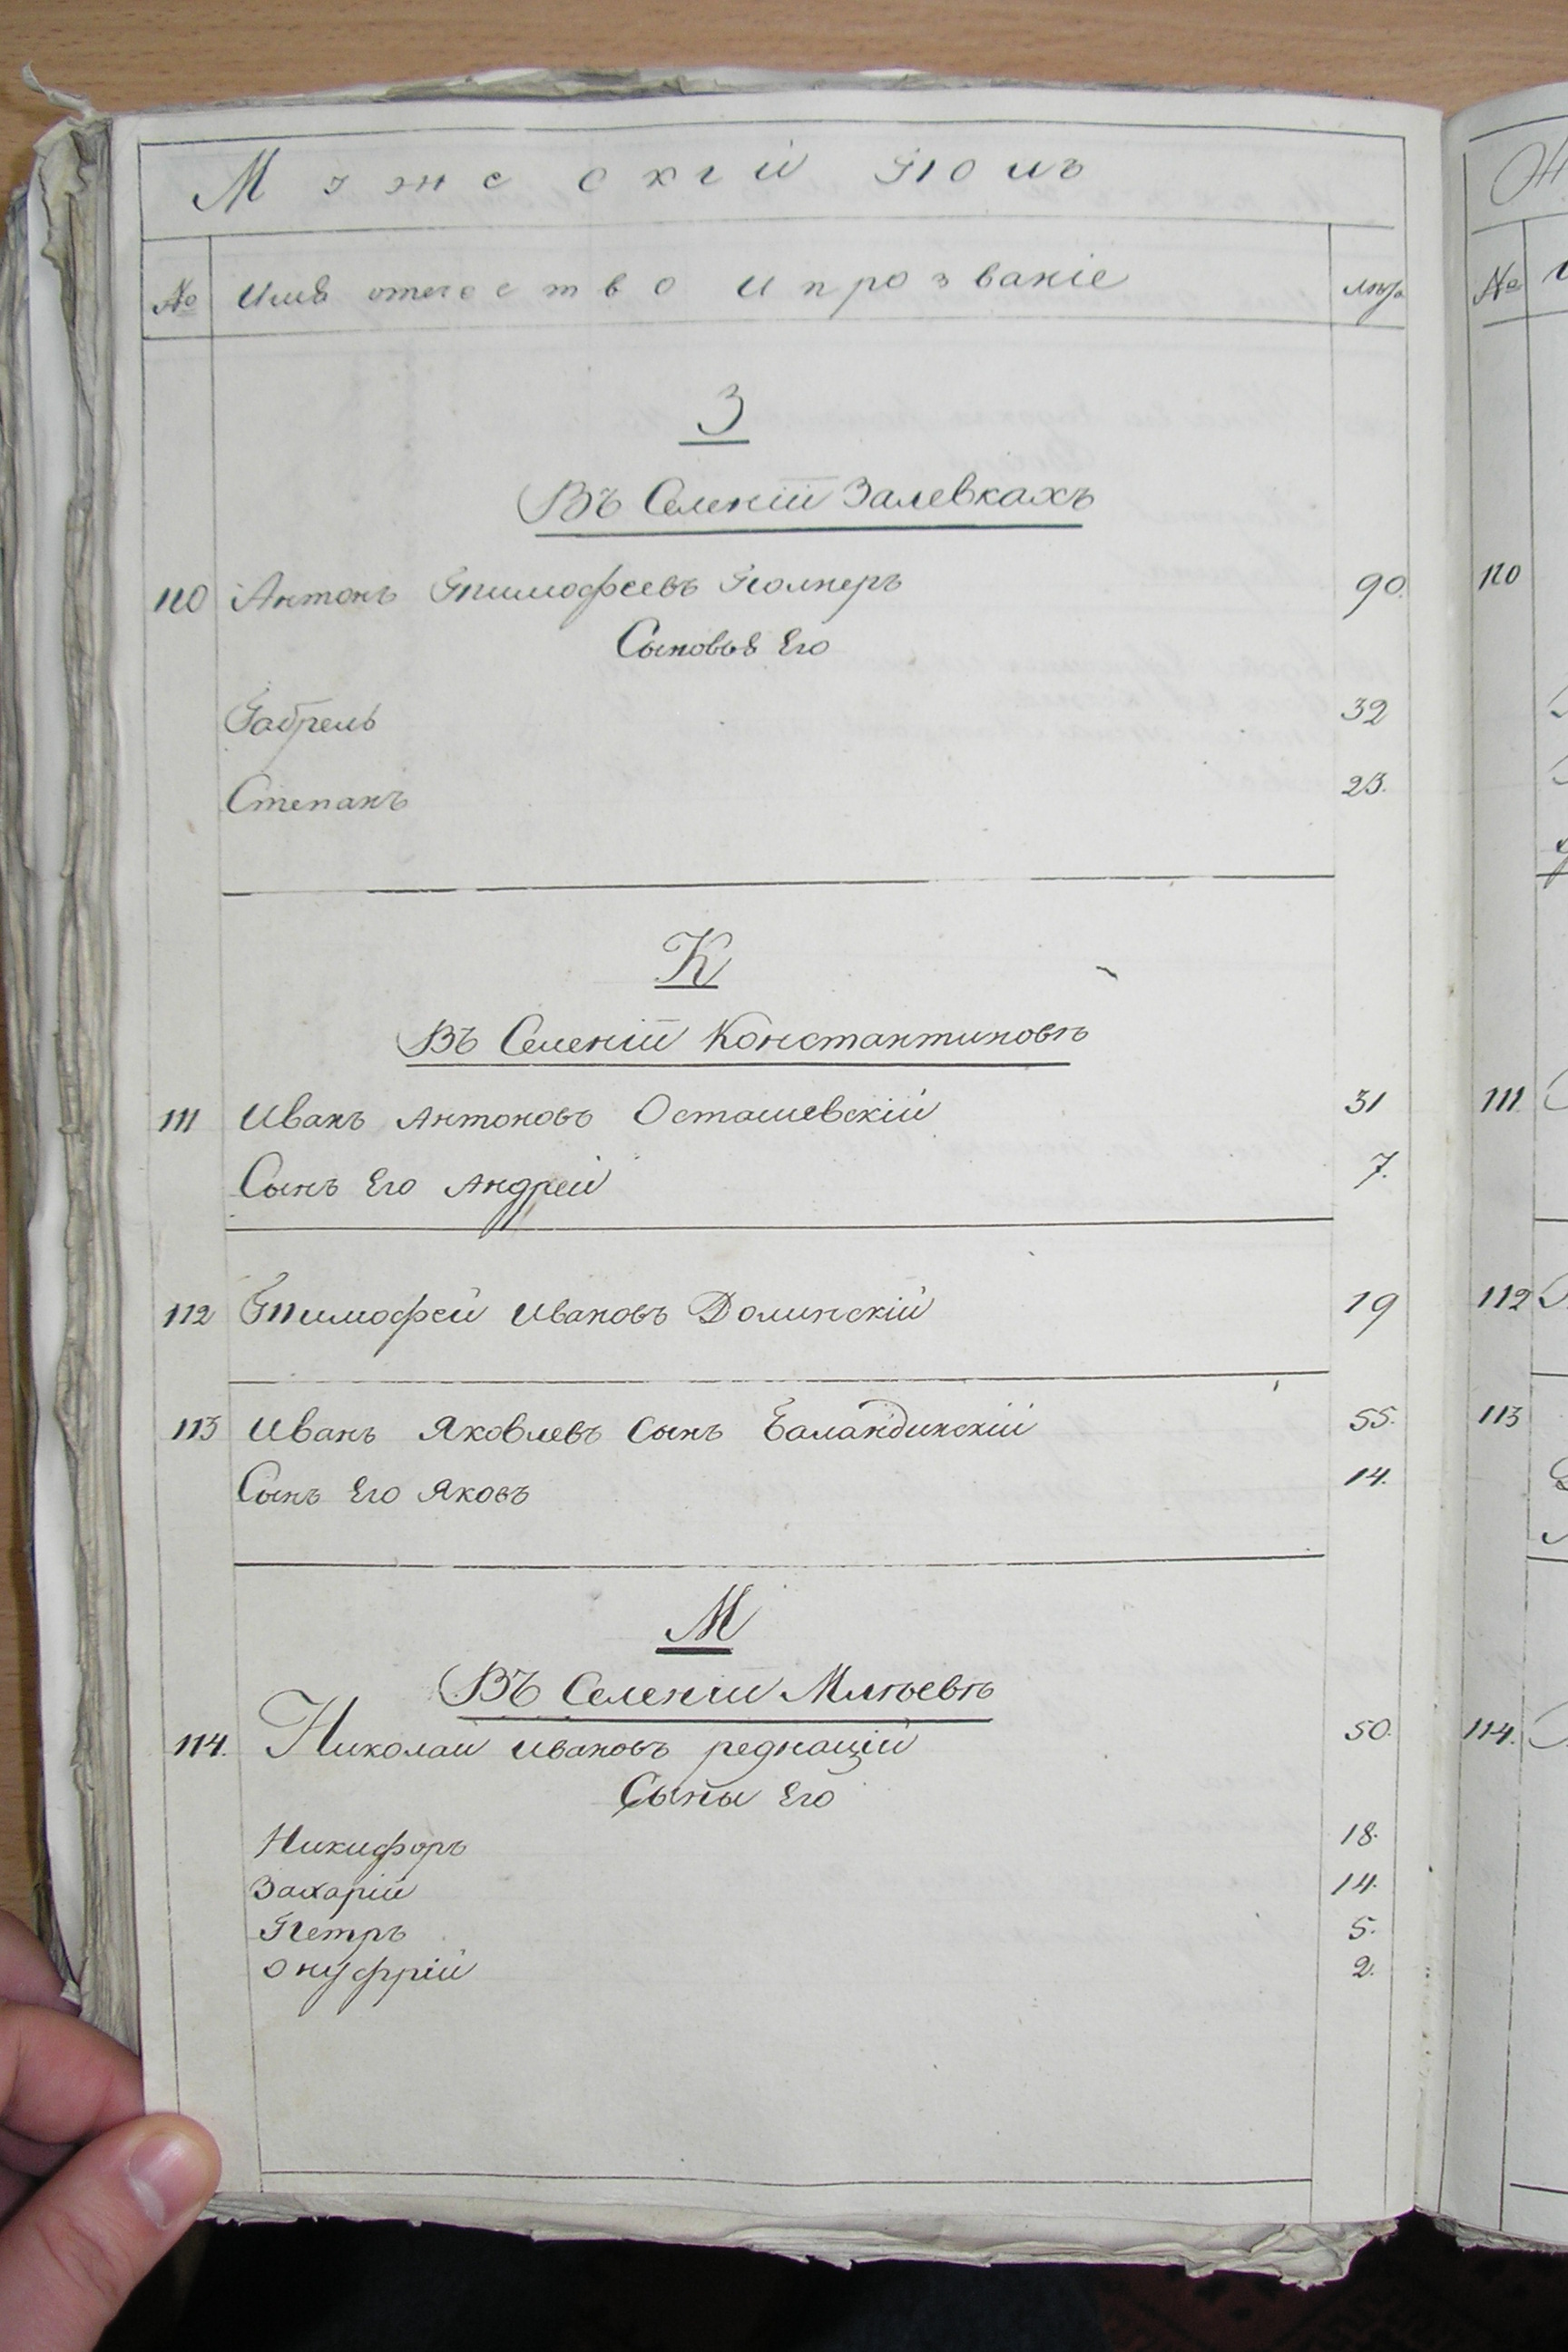 Мужескій полъ
№ Имя отечество и прозваніе лѣта
З
Въ Селеніи Залевкахъ
110 Антонъ Тимофеевъ 90.
Сыновья Его
Габрель 32
Степанъ 23.
К
Въ Селеніи Константиновъ
111 Иванъ Антоновъ Осташевскій 31
Сынъ Его Андрей 7.
112 Тимофей Ивановъ Долинскій 19
113 Иванъ Яковлевъ Сынъ Баландинскій 55.
Сынъ Его Яковъ 14.
М
Въ Селеніи Млѣевѣ
114. Николай Ивановъ 50.
Сыны Его
Никифоръ 18.
Захарій 14.
Петръ 5.
Онуфрій 2.
№
110
111
112
113
114.